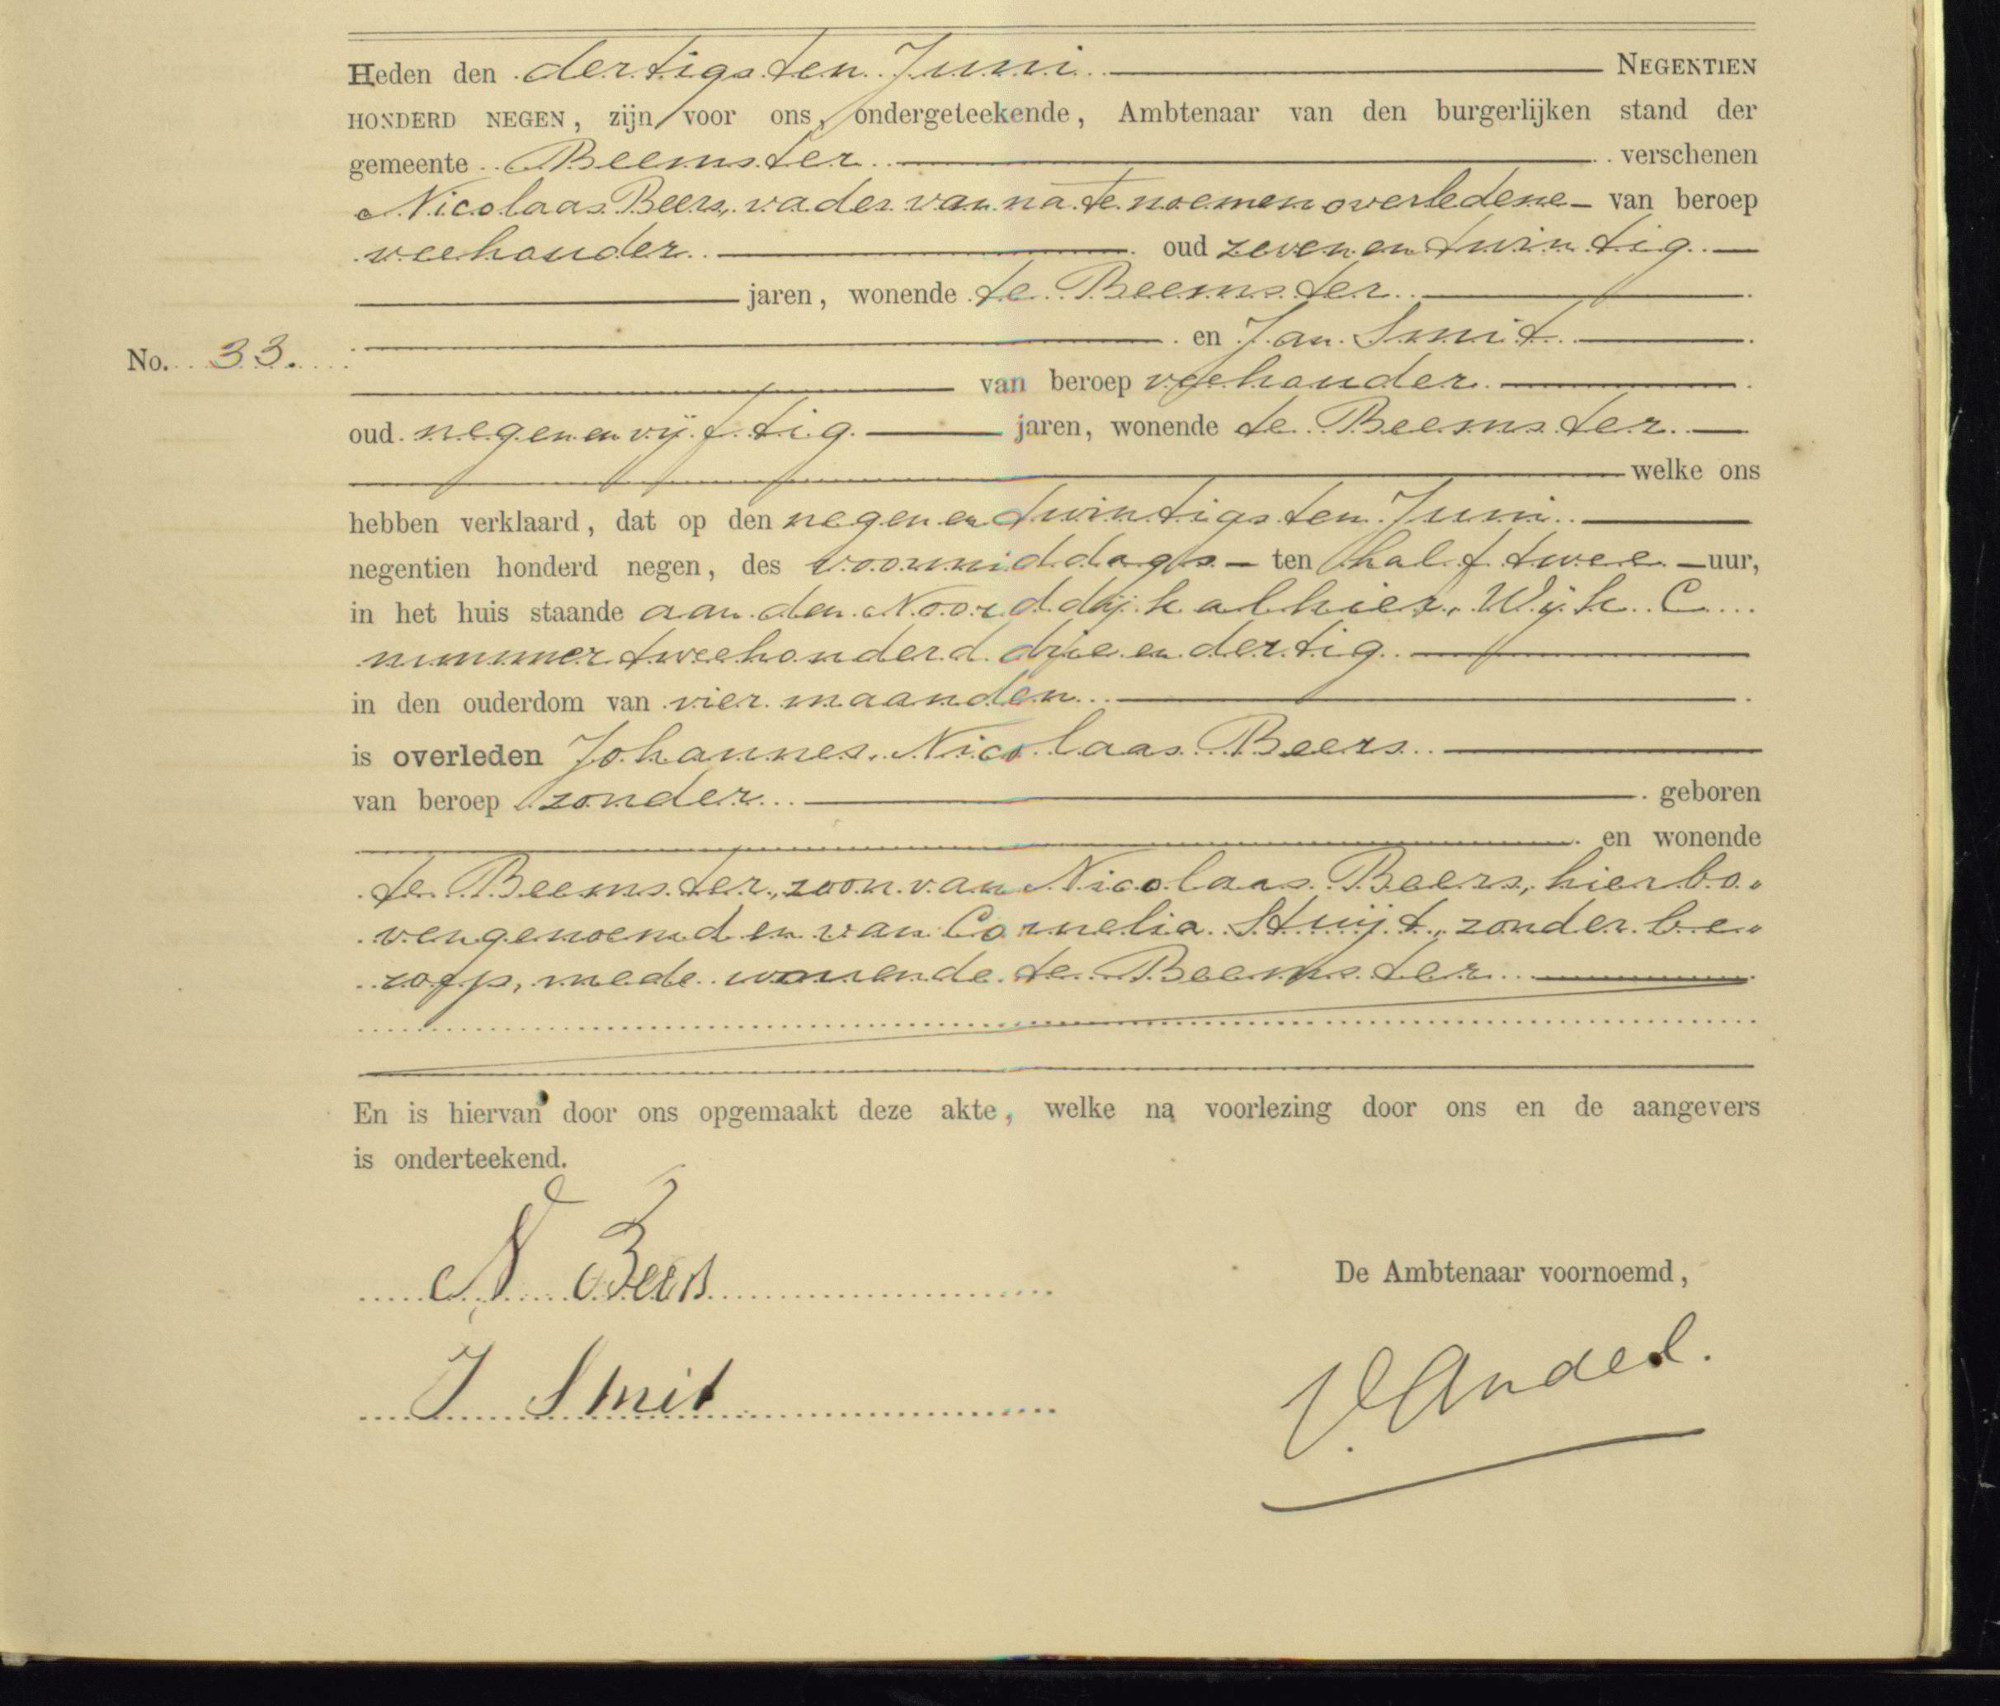 Heden den dertigsten Juni NEGENTIEN
HONDERD NEGEN, zijn voor ons, ondergeteekende, Ambtenaar van den burgerlijken stand der
gemeente Beemster verschenen
Nicolaas Beers, vader van na te noemen overledene van beroep
veehouder oud zevenentwintig
jaren, wonende te Beemster
en Jan Smit
No. 33.
van beroep veehouder
oud negenenvijftig jaren, wonende te Beemster
welke ons
hebben verklaard, dat op den negenentwintigsten Juni
negentien honderd negen, des voormiddags ten half twee uur,
in het huis staande aan den Noorddijk alhier, Wijk C
nummer tweehonderd drieendertig
in den ouderdom van vier maanden
is overleden Johannes Nicolaas Beers
van beroep zonder geboren
en wonende
te Beemster, zoon van Nicolaas Beers, hierbo„
vengenoemd en van Cornelia Stuijt, zonder be„
roep, mede wonende te Beemster
En is hiervan door ons opgemaakt deze akte, welke na voorlezing door ons en de aangevers
is onderteekend.
N Beers
De Ambtenaar voornoemd,
J Smit
V. Andel.